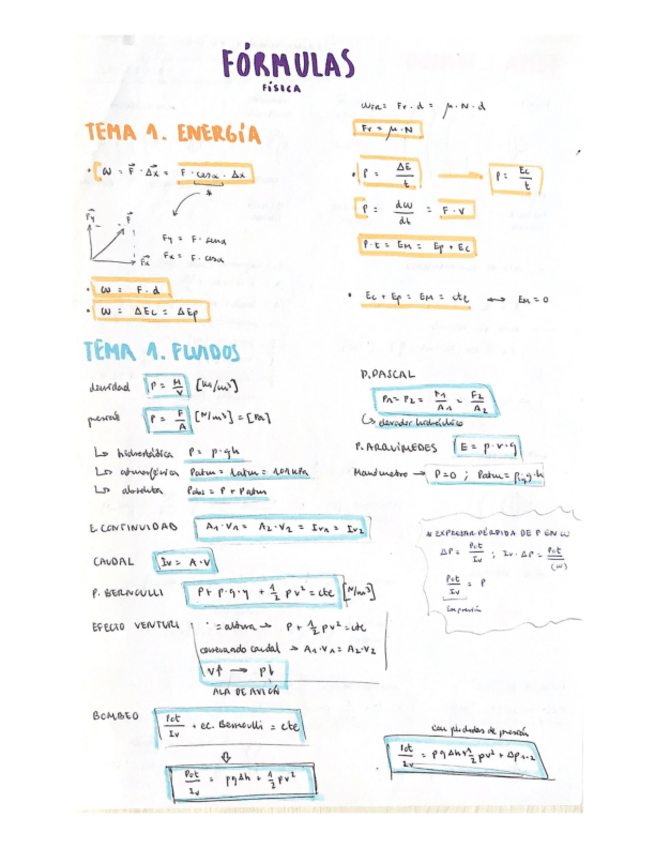 FÓRMULAS
FÍSICA
TEMA 1. ENERGÍA
• W = F⃗ · Δx⃗ = F · cosα · Δx
*
F⃗y
F⃗
F⃗x
Fy = F · senα
Fx = F · cosα
• W = F · d
• W = ΔEc = ΔEp
WFR = Fr · d = μ · N · d
Fr = μ · N
• P = ΔE/t → P = Ec/t
P = dW/dt = F · v
P · t = Em = Ep + Ec
• Ec + Ep = Em = cte ↔ Em = 0
TEMA 1. FLUIDOS
densidad ρ = M/V [kg/m³]
presión P = F/A [N/m²] = [Pa]
↳ hidrostática P = ρ · gh
↳ atmosférica Patm = 1atm = 101 kPa
↳ absoluta Pabs = P + Patm
P. PASCAL
P1 = P2 = F1/A1 = F2/A2
↳ elevador hidráulico
P. ARQUÍMEDES E = ρ · v · g
Manómetro → P = 0 ; Patm = ρliq g · h
E. CONTINUIDAD A1 · V1 = A2 · V2 = Iv1 = Iv2
CAUDAL Iv = A · V
P. BERNOULLI P + ρ · g · y + 1/2 ρv² = cte [N/m²]
EFECTO VENTURI = altura → P + 1/2 ρv² = cte
conservando caudal → A1 · V1 = A2 · V2
v↑ → p↓
ALA DE AVIÓN
* EXPRESAR PÉRDIDA DE P EN W
ΔP = Pot/Iv ; Iv · ΔP = Pot (W)
Pot/Iv = P
En presión
BOMBEO Pot/Iv + ec. Bernoulli = cte
⇩
Pot/Iv = ρgΔh + 1/2 ρv²
con pérdidas de presión
Pot/Iv = ρgΔh + 1/2 ρv² + ΔP1-2